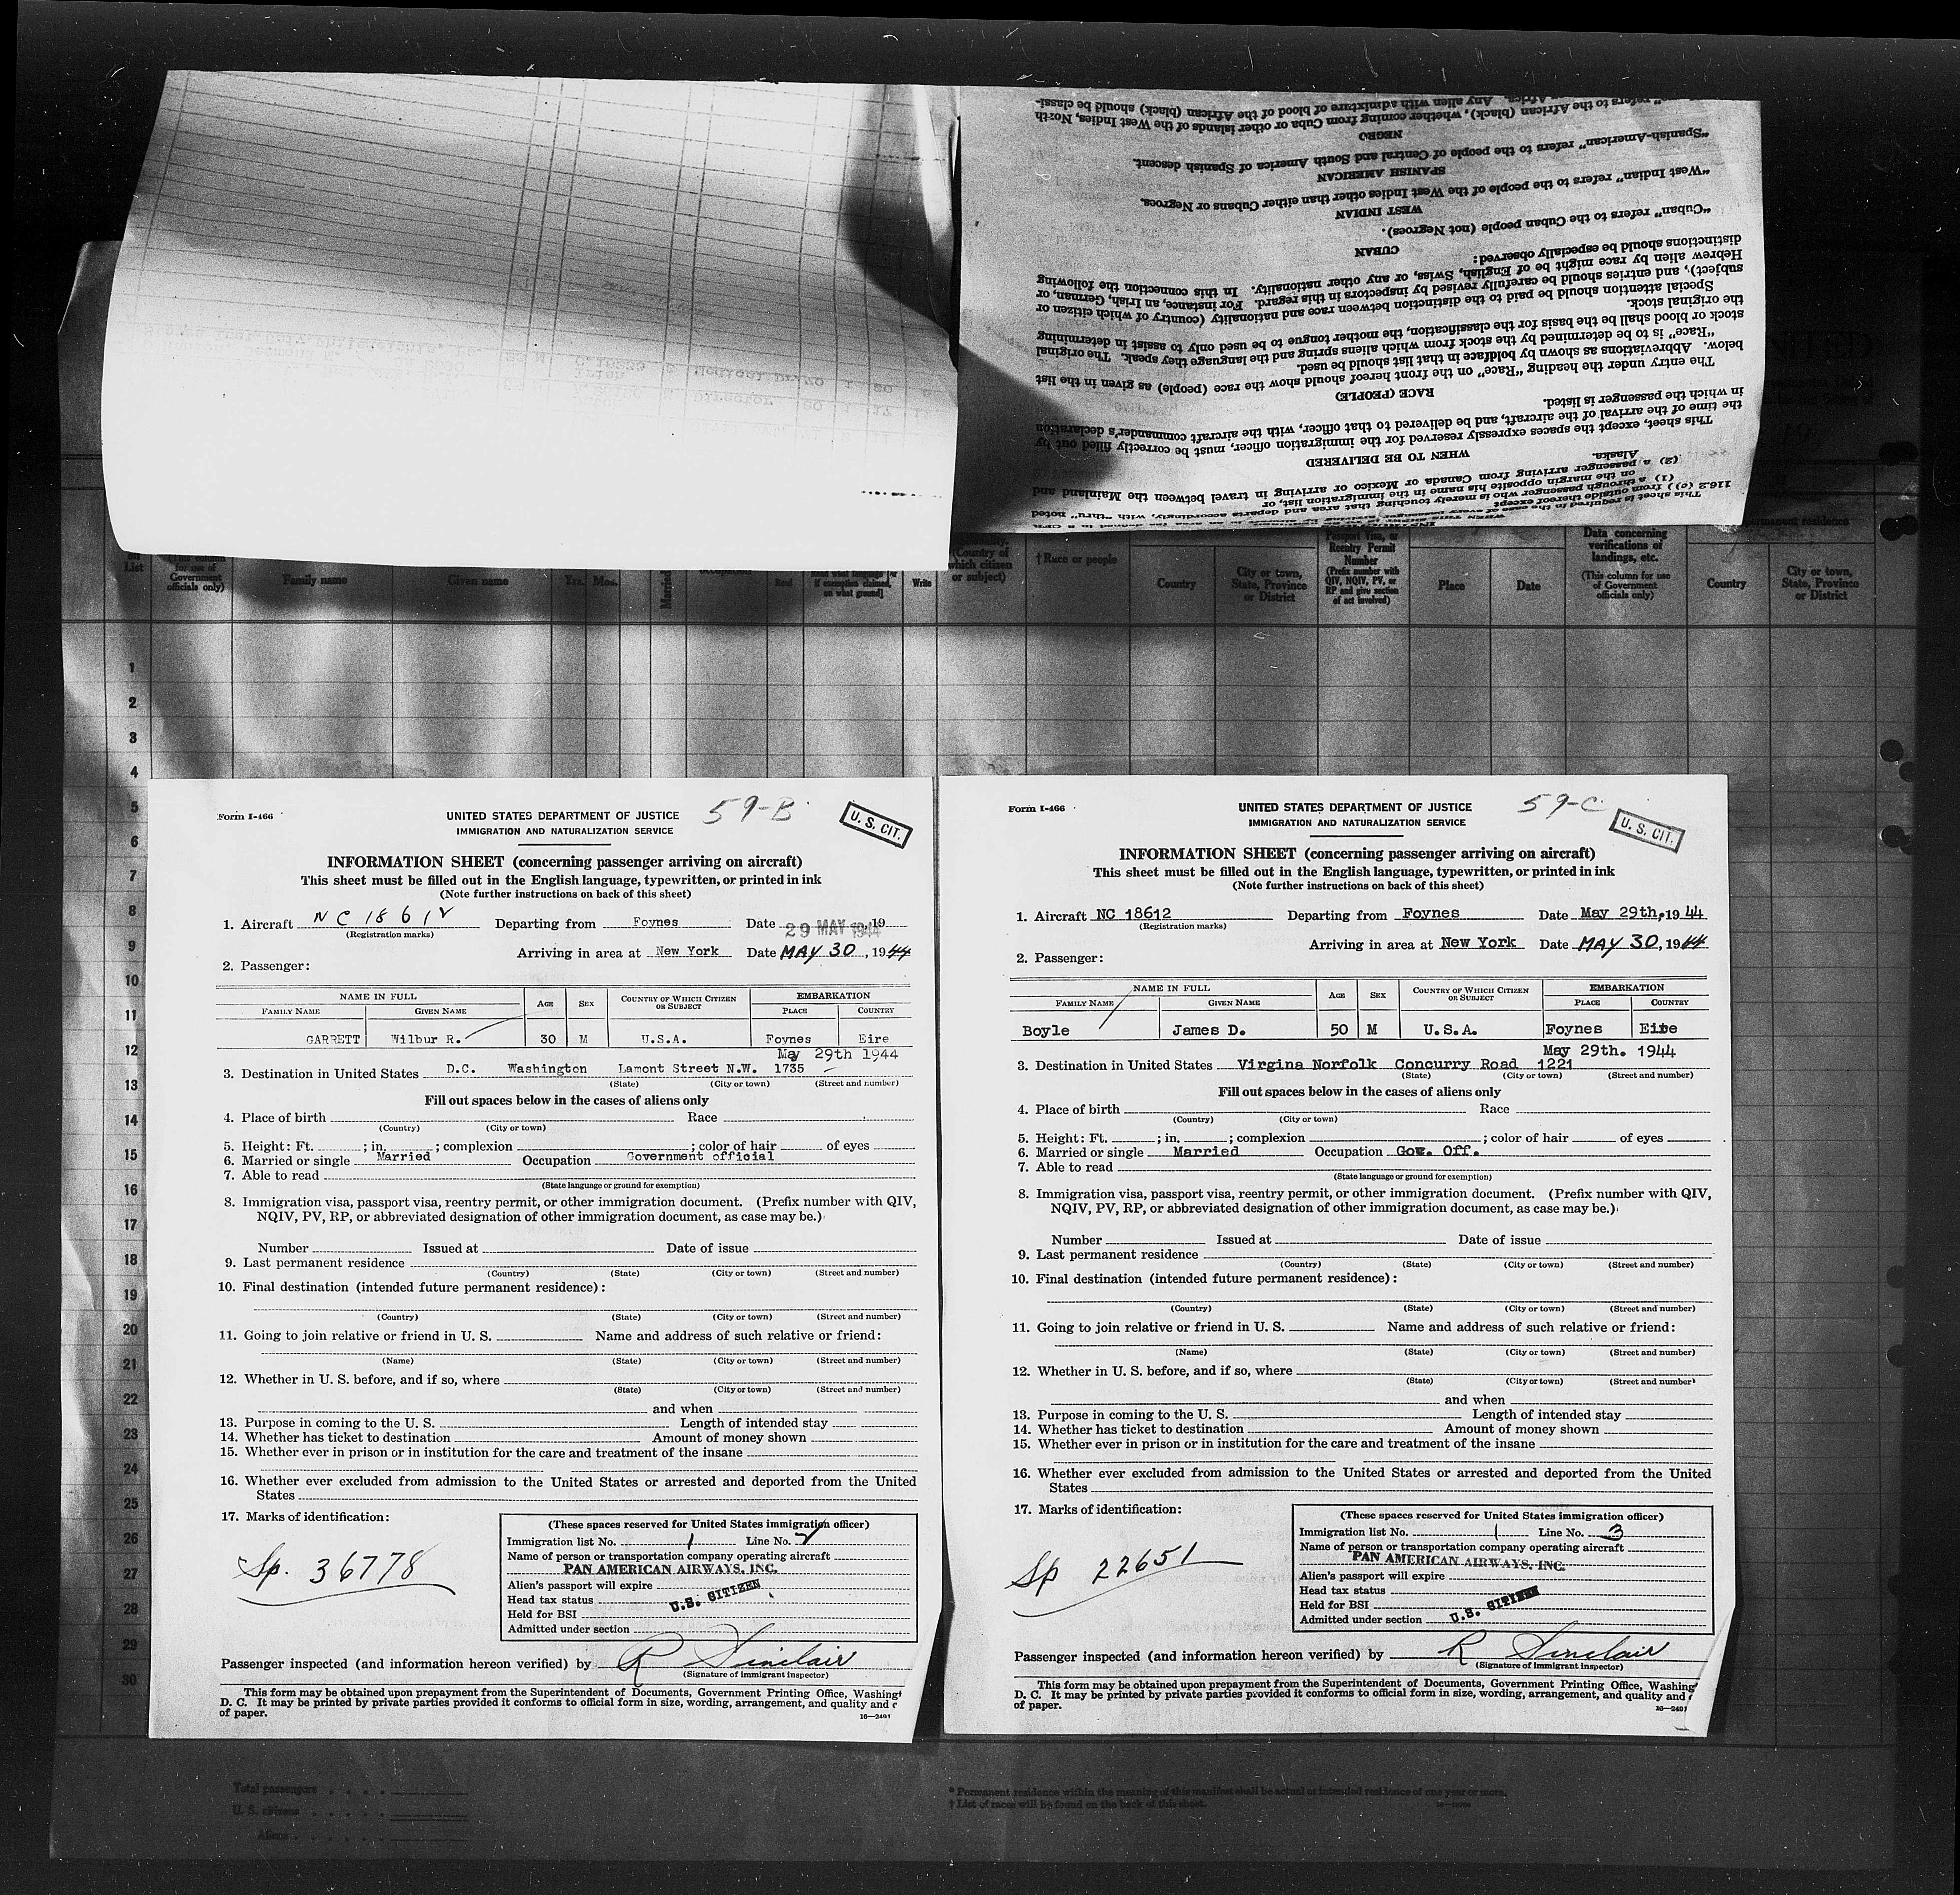 " refers to the African (black), whether coming from Cuba or other islands of the West Indies, North
Africa. Any alien with admixture of blood of the African (black) should be classi-
NEGRO
"Spanish-American" refers to the people of Central and South America of Spanish descent.
SPANISH AMERICAN
"West Indian" refers to the people of the West Indies other than either Cubans or Negroes.
WEST INDIAN
"Cuban" refers to the Cuban people (not Negroes).
CUBAN
distinctions should be especially observed:
Hebrew alien by race might be of English, Swiss, or any other nationality. In this connection the following
subject), and entries should be carefully revised by inspectors in this regard. For instance, an Irish, German, or
Special attention should be paid to the distinction between race and nationality (country of which citizen or
the original stock.
stock or blood shall be the basis for the classification, the mother tongue to be used only to assist in determining
"Race" is to be determined by the stock from which aliens spring and the language they speak. The original
below. Abbreviations as shown by boldface in that list should be used.
The entry under the heading "Race" on the front hereof should show the race (people) as given in the list
RACE (PEOPLE)
in which the passenger is listed.
the time of the arrival of the aircraft, and be delivered to that officer, with the aircraft commander's declaration
This sheet, except the spaces expressly reserved for the immigration officer, must be correctly filled out by
WHEN TO BE DELIVERED
Alaska.
(2) a passenger arriving from Canada or Mexico or arriving in travel between the Mainland and
on the margin opposite his name in the immigration list, or
(1) a through passenger who is merely touching that area and departs accordingly, with "thru" noted
116.2 (c) from outside thereof except
List
for use of
Government
officials only)
Family name
Given name
Yrs. Mos.
Read
Read what language [or
if exemption claimed,
on what ground]
Write
(Country of
which citizen
or subject)
† Race or people
Country
City or town,
State, Province
or District
Passport Visa, or
Reentry Permit
Number
(Prefix number with
QIV, NQIV, PV, or
RP and give section
of act involved)
Place
Date
Data concerning
verifications of
landings, etc.
(This column for use
of Government
officials only)
permanent residence
Country
City or town,
State, Province
or District
1
2
3
4
5
6
7
8
9
10
11
12
13
14
15
16
17
18
19
20
21
22
23
24
25
26
27
28
29
30
Form I-466
UNITED STATES DEPARTMENT OF JUSTICE
59-B
U. S. CIT.
IMMIGRATION AND NATURALIZATION SERVICE
INFORMATION SHEET (concerning passenger arriving on aircraft)
This sheet must be filled out in the English language, typewritten, or printed in ink
(Note further instructions on back of this sheet)
1. Aircraft NC 18612 Departing from Foynes Date 29 MAY 1944 19
(Registration marks)
Arriving in area at New York Date MAY 30, 1944
2. Passenger:
NAME IN FULL AGE SEX COUNTRY OF WHICH CITIZEN OR SUBJECT EMBARKATION
FAMILY NAME GIVEN NAME PLACE COUNTRY
GARRETT Wilbur R. 30 M U.S.A. Foynes Eire
May 29th 1944
3. Destination in United States D.C. Washington Lamont Street N.W. 1735
(State) (City or town) (Street and number)
Fill out spaces below in the cases of aliens only
4. Place of birth Race
(Country) (City or town)
5. Height: Ft. ; in. ; complexion ; color of hair of eyes
6. Married or single Married Occupation Government official
7. Able to read
(State language or ground for exemption)
8. Immigration visa, passport visa, reentry permit, or other immigration document. (Prefix number with QIV,
NQIV, PV, RP, or abbreviated designation of other immigration document, as case may be.)
Number Issued at Date of issue
9. Last permanent residence
(Country) (State) (City or town) (Street and number)
10. Final destination (intended future permanent residence):
(Country) (State) (City or town) (Street and number)
11. Going to join relative or friend in U. S. Name and address of such relative or friend:
(Name) (State) (City or town) (Street and number)
12. Whether in U. S. before, and if so, where
(State) (City or town) (Street and number)
and when
13. Purpose in coming to the U. S. Length of intended stay
14. Whether has ticket to destination Amount of money shown
15. Whether ever in prison or in institution for the care and treatment of the insane
16. Whether ever excluded from admission to the United States or arrested and deported from the United
States
17. Marks of identification:
Sp. 36778
(These spaces reserved for United States immigration officer)
Immigration list No. 1 Line No. 2
Name of person or transportation company operating aircraft
PAN AMERICAN AIRWAYS, INC.
Alien's passport will expire
Head tax status U.S. CITIZEN
Held for BSI
Admitted under section
Passenger inspected (and information hereon verified) by R Sinclair
(Signature of immigrant inspector)
This form may be obtained upon prepayment from the Superintendent of Documents, Government Printing Office, Washing
D. C. It may be printed by private parties provided it conforms to official form in size, wording, arrangement, and quality and c
of paper.
16—2491
Form I-466
UNITED STATES DEPARTMENT OF JUSTICE
59-C
U. S. CIT.
IMMIGRATION AND NATURALIZATION SERVICE
INFORMATION SHEET (concerning passenger arriving on aircraft)
This sheet must be filled out in the English language, typewritten, or printed in ink
(Note further instructions on back of this sheet)
1. Aircraft NC 18612 Departing from Foynes Date May 29th, 1944
(Registration marks)
Arriving in area at New York Date MAY 30, 1944
2. Passenger:
NAME IN FULL AGE SEX COUNTRY OF WHICH CITIZEN OR SUBJECT EMBARKATION
FAMILY NAME GIVEN NAME PLACE COUNTRY
Boyle James D. 50 M U.S.A. Foynes Eire
May 29th. 1944
3. Destination in United States Virgina Norfolk Concurry Road 1221
(State) (City or town) (Street and number)
Fill out spaces below in the cases of aliens only
4. Place of birth Race
(Country) (City or town)
5. Height: Ft. ; in. ; complexion ; color of hair of eyes
6. Married or single Married Occupation Gov. Off.
7. Able to read
(State language or ground for exemption)
8. Immigration visa, passport visa, reentry permit, or other immigration document. (Prefix number with QIV,
NQIV, PV, RP, or abbreviated designation of other immigration document, as case may be.)
Number Issued at Date of issue
9. Last permanent residence
(Country) (State) (City or town) (Street and number)
10. Final destination (intended future permanent residence):
(Country) (State) (City or town) (Street and number)
11. Going to join relative or friend in U. S. Name and address of such relative or friend:
(Name) (State) (City or town) (Street and number)
12. Whether in U. S. before, and if so, where
(State) (City or town) (Street and number)
and when
13. Purpose in coming to the U. S. Length of intended stay
14. Whether has ticket to destination Amount of money shown
15. Whether ever in prison or in institution for the care and treatment of the insane
16. Whether ever excluded from admission to the United States or arrested and deported from the United
States
17. Marks of identification:
Sp 22651
(These spaces reserved for United States immigration officer)
Immigration list No. 1 Line No. 3
Name of person or transportation company operating aircraft
PAN AMERICAN AIRWAYS, INC.
Alien's passport will expire
Head tax status
Held for BSI U.S. CITIZEN
Admitted under section
Passenger inspected (and information hereon verified) by R Sinclair
(Signature of immigrant inspector)
This form may be obtained upon prepayment from the Superintendent of Documents, Government Printing Office, Washing
D. C. It may be printed by private parties provided it conforms to official form in size, wording, arrangement, and quality and c
of paper.
16—2491
Total passengers
U. S. citizens
Aliens
* Permanent residence within the meaning of this manifest shall be actual or intended residence of one year or more.
† List of races will be found on the back of this sheet.